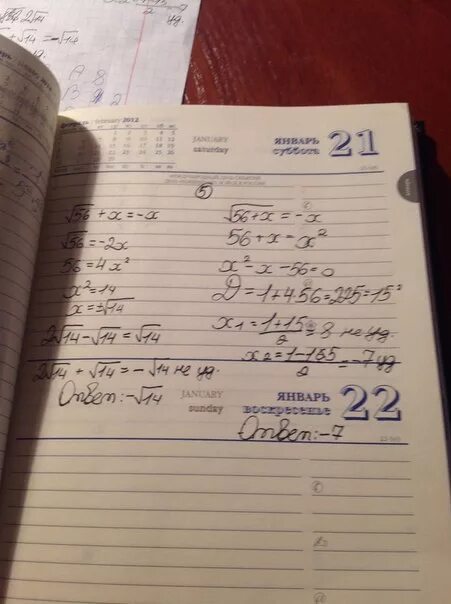 2√14
+ √14 = -√14
A 8
February 2012
JANUARY
saturday
ЯНВАРЬ
суббота
21
5
√56 + x = -x
√56 = -2x
56 = 4x²
x² = 14
x = ±√14
2√14 - √14 = √14
2√14 + √14 = -√14 не уд.
Ответ: -√14
√56 + x = -x
56 + x = x²
x² - x - 56 = 0
D = 1 + 4.56 = 225 = 15²
x1 = 1+15 / 2 = 8 не уд.
x2 = 1-15 / 2 = -7 уд
JANUARY
sunday
ЯНВАРЬ
воскресенье
22
Ответ: -7